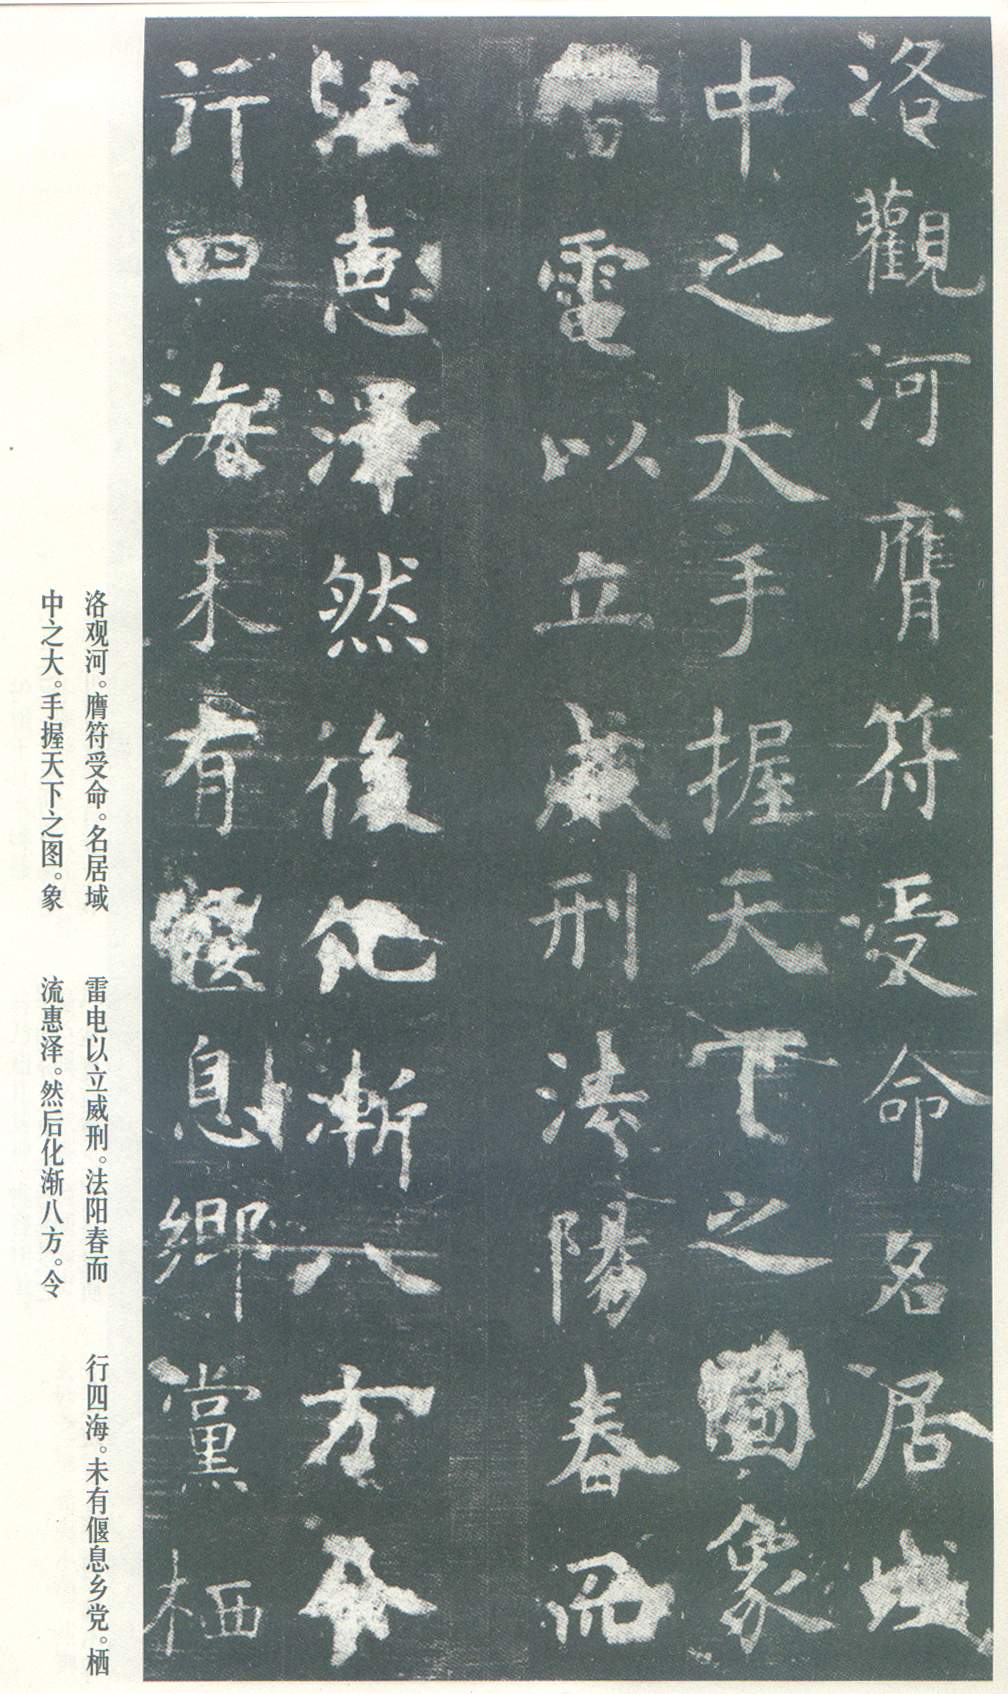 洛觀河膺符受命名居域
中之大手握天下之圖象
雷電以立威刑法陽春而
流惠澤然後化漸八方令
行四海未有偃息鄉黨栖
洛观河。膺符受命。名居域
中之大。手握天下之图。象
雷电以立威刑。法阳春而
流惠泽。然后化渐八方。令
行四海。未有偃息乡党。栖